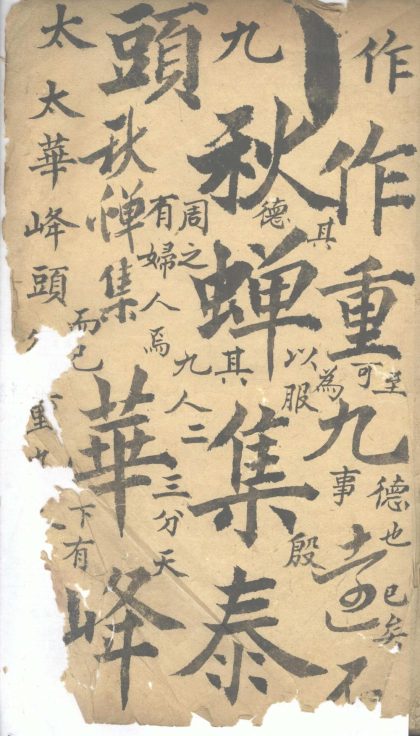 作
至德也已矣
作重九
其可
為事
德以服殷
九秋蝉集泰
周之其
九人二
有婦人焉
三分天
頭
秋惮集
華峰
而已
下有
太太華峰頭
重